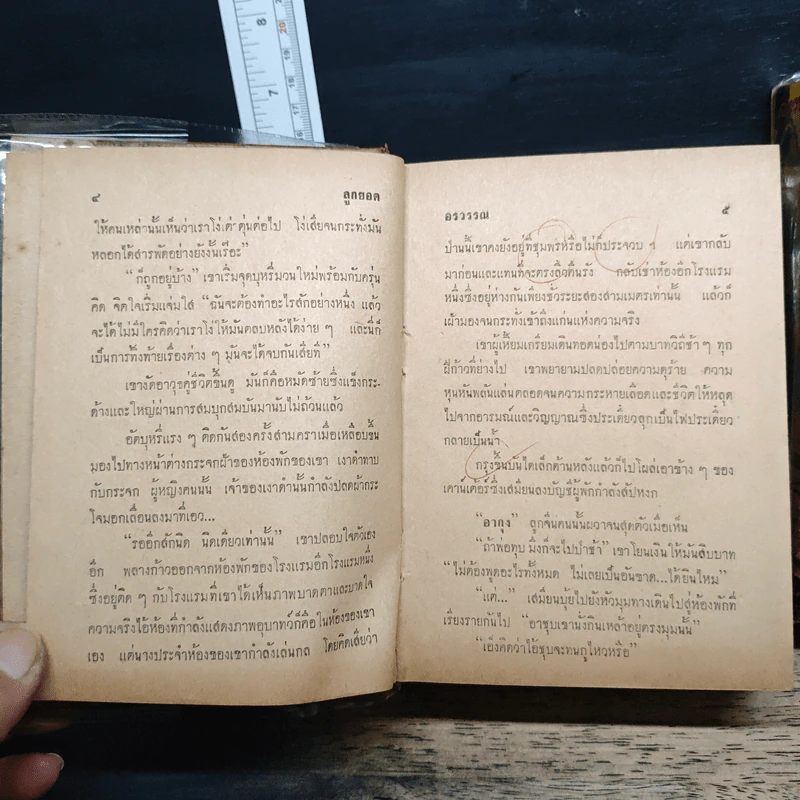 8
7
20
18
17
16
๔ ลูกยอด
ให้คนเหล่านั้นเห็นว่าเราโง่เต่าตุ่นต่อไป โง่เสียจนกระทั่งมัน
หลอกได้สารพัดอย่างยังงั้นเรอะ”
“ก็ถูกอยู่บ้าง” เขาเริ่มจุดบุหรี่มวนใหม่พร้อมกับครุ่น
คิด จิตใจเริ่มแจ่มใส “ฉันจะต้องทำอะไรสักอย่างหนึ่ง แล้ว
จะได้ไม่มีใครคิดว่าเราโง่ให้มันตลบหลังได้ง่าย ๆ และนี่ก็
เป็นการทิ้งท้ายเรื่องต่าง ๆ มันจะได้จบกันเสียที”
เขางัดอาวุธคู่ชีวิตขึ้นดู มันก็คือหมัดซ้ายซึ่งแข็งกระ-
ด้างและใหญ่ผ่านการสมบุกสมบันมานับไม่ถ้วนแล้ว
อัดบุหรี่แรง ๆ ติดกันสองครั้งสามคราเมื่อเหลือบขึ้น
มองไปทางหน้าต่างกระจกฝ้าของห้องพักของเขา เงาดำทาบ
กับกระจก ผู้หญิงคนนั้น เจ้าของเงาดำนั้นกำลังปลดผ้ากระ
โจมอกเลื่อนลงมาที่เอว...
“รออีกสักนิด นิดเดียวเท่านั้น” เขาปลอบใจตัวเอง
อีก พลางก้าวออกจากห้องพักของโรงแรมอีกโรงแรมหนึ่ง
ซึ่งอยู่ติด ๆ กับโรงแรมที่เขาได้เห็นภาพบาดตาและบาดใจ
ความจริงไอ้ห้องที่กำลังแสดงภาพอุบาทว์ก็คือในห้องของเขา
เอง แต่นางประจำห้องของเขากำลังเล่นกล โดยคิดเสียว่า
อรวรรณ ๕
ป่านนี้เขาคงยังอยู่ที่ชุมพรหรือไม่ก็ประจวบ ฯ แต่เขากลับ
มาก่อนและแทนที่จะตรงลิ่วคืนรัง กลับเช่าห้องอีกโรงแรม
หนึ่งซึ่งอยู่ห่างกันเพียงชั่วระยะสองสามเมตรเท่านั้น แล้วก็
เฝ้ามองจนกระทั่งเข้าถึงแก่นแห่งความจริง
เขาผู้เหี้ยมเกรียมเดินทอดน่องไปตามบาทวิถีช้า ๆ ทุก
ฝีก้าวที่ย่างไป เขาพยายามปลดปล่อยความดุร้าย ความ
หุนหันพลันแล่นตลอดจนความกระหายเลือดและชีวิตให้หลุด
ไปจากอารมณ์และวิญญาณซึ่งประเดี๋ยวลุกเป็นไฟประเดี๋ยว
กลายเป็นน้ำ
กรุงขึ้นบันไดเล็กด้านหลังแล้วก็ไปโผล่เอาข้าง ๆ ของ
เคาน์เต้อร์ซึ่งเสมียนลงบัญชีผู้พักกำลังสัปหงก
“อากุง” ลูกจีนคนนั้นผวาจนสุดตัวเมื่อเห็น
“ถ้าพ่อทุบ มึงก็จะไปป่าช้า” เขาโยนเงินให้มันสิบบาท
“ไม่ต้องพูดอะไรทั้งหมด ไม่เลยเป็นอันขาด...ได้ยินไหม”
“แต่...” เสมียนบุ้ยไปยังหัวมุมทางเดินไปสู่ห้องพักที่
เรียงรายกันไป “อาชุบเขานั่งกินเหล้าอยู่ตรงมุมนั้น”
“เอ็งคิดว่าไอ้ชุบจะทนกูไหวหรือ”